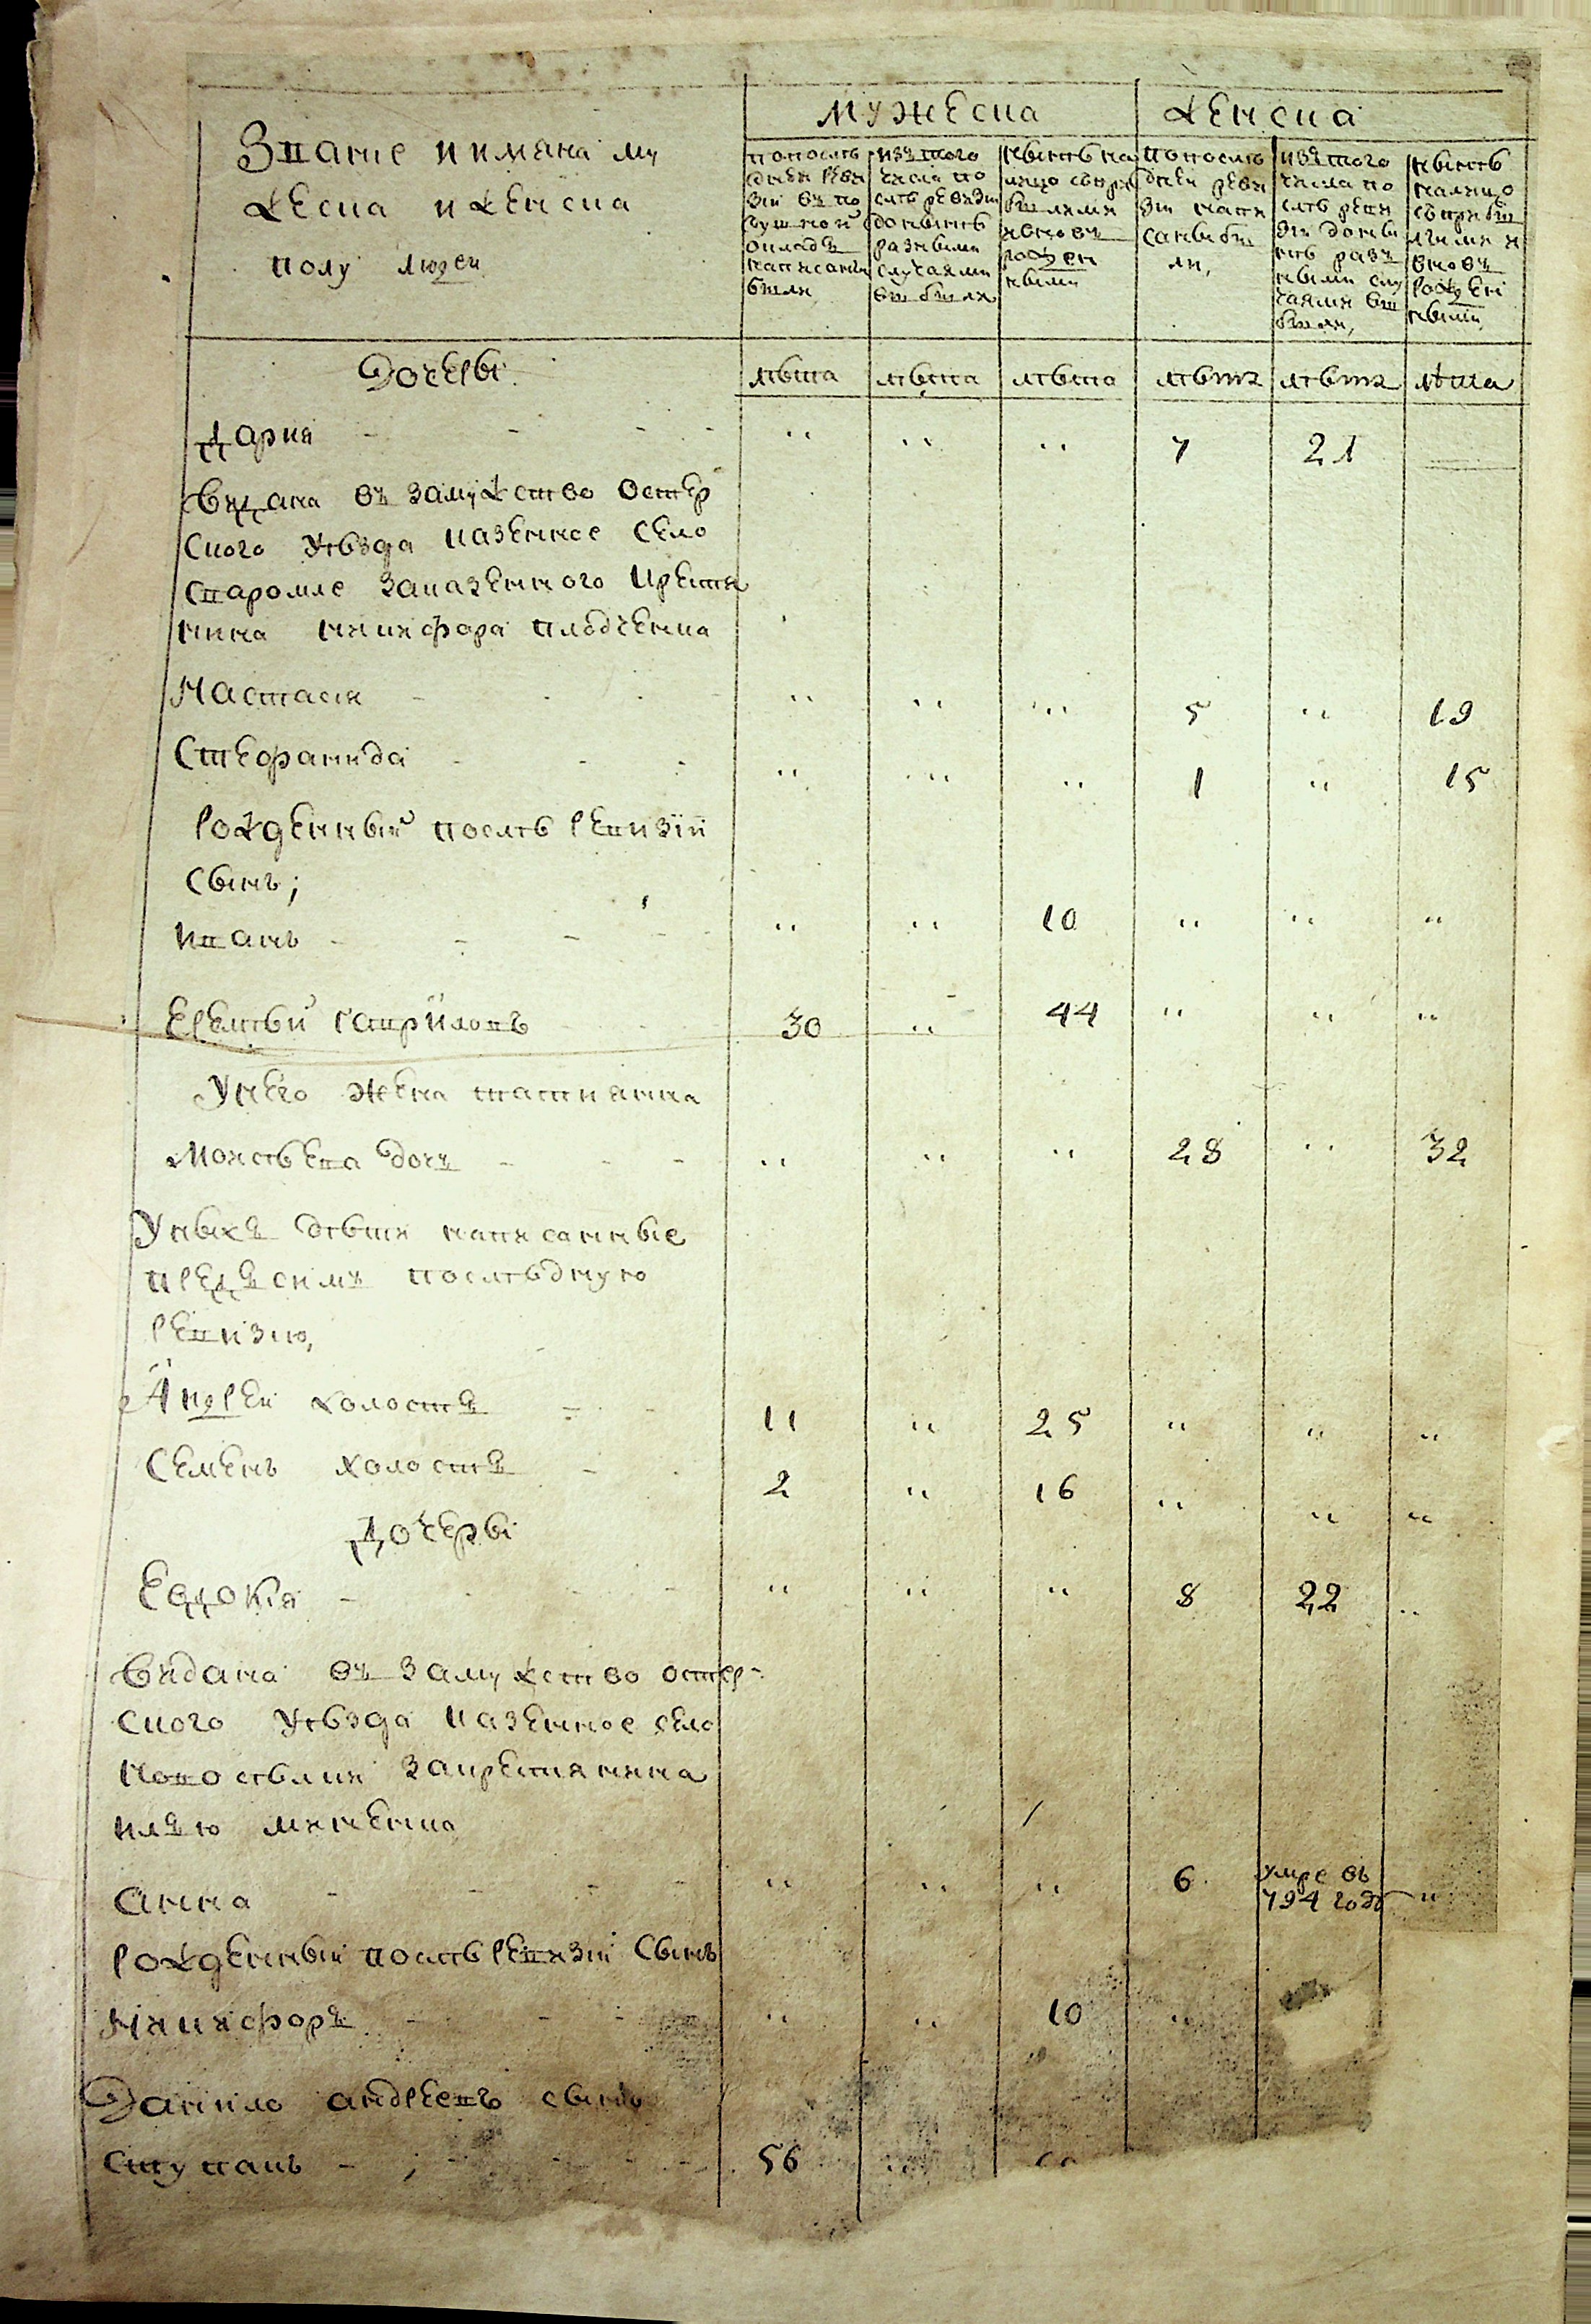 мужеска женска
Звание и имяна му
жеска и женска
полу людеи
попослѣ
дней реви
зіи въ по
душной
окладъ
написаны
были
изътого
числа по
слѣ ревизіи
донынѣ
разными
случаями
выбыли
нынѣ на
лицо съпри
былими
и вновь
рожден
ными
попослѣ
дней реви
зіи напи
саны бы
ли,
изътого
числа по
слѣ реви
зіи доны
нѣ раз
ными слу
чаями вы
были,
нынѣ
налицо
съприбы
лыми и
вновь
рожден
ными,
Дочеры лѣта лѣта лѣта лѣтъ лѣтъ лѣта
Дария - - - - " " " 7 21
видана въ замужство Остер
ского уѣзда казенное село
Старогле заказенного крестя
нина никифора
Настасия - - - " " " 5 " 19
Стефанида - - - " " " 1 " 15
Рожденный послѣ ревизіи
сынъ;
иванъ - - - - " " 10 " " "
Еремѣй Гаврїловъ 30 " 44 " " "
Унего жена татиянна
Моисѣева дочъ - - - " " " 28 " 32
Уныхъ дѣти написанные
предъ симъ послѣдную
ревизию,
Андрей холостъ - - 11 " 25 " " "
Семенъ холостъ - - 2 " 16 " " "
Дочеры
Евдокія - - - - " " " 8 22 "
видана въ замужство остер-
ского уѣзда казенное село
за крестиянина
илъю
анна - - - - " " " 6 умре въ 794 годѣ "
Рожденный послѣ ревизіи сынъ
Никифоръ - - - - " " 10 "
Данило андреевъ сынъ
Ступакъ - ; - - - - 56 "